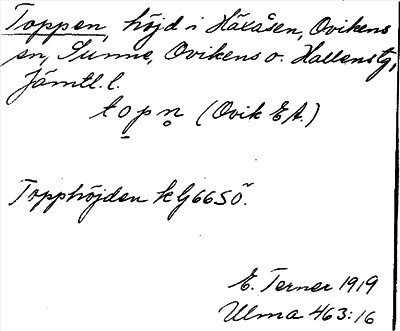 Toppen, höjd i Häxåsen, Ovikens
sn, Sunne, Ovikens o. Hallens tg,
Jämtl. l.
t o p n (Ovik E A.)
Topphöjden k lj 66 S Ö.
E. Terner 1919
Ulma 463:16